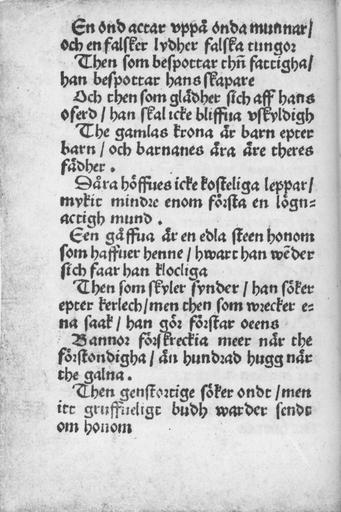 En ond actar vppå onda munnar/
och en falsker lydher falska tungor
Then som bespottar thñ fattigha/
han bespottar hans skapare
Och then som glädher sich aff hans
oferd/ han skal icke bliffua vskyldigh
The gamlas krona är barn epter
barn/ och barnanes ära äre theres
fädher.
Dåra höffues icke kosteliga leppar/
mykit mindre enom första en lögn-
actigh mund.
Een gåffua är en edla steen honom
som haffuer henne/ hwart han wẽder
sich faar han klocliga
Then som skyler synder/ han söker
epter kerlech/ men then som wrecker e-
na saak/ han gör förstar oeens
Bannor förskreckia meer når the
förstondigha/ än hundrad hugg når
the galna.
Then genstortige söker ondt/ men
itt gruffueligt budh warder sendt
om honom